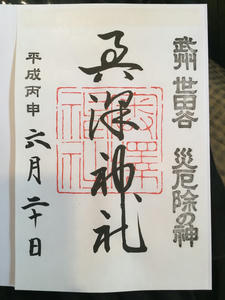 武州 世田谷 災厄除の神
奥澤神社
平成丙申 六月二十日